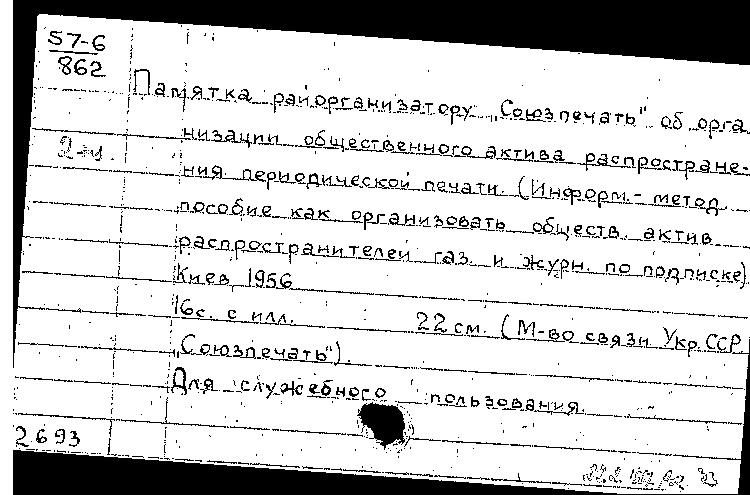 57-6
862
Памятка райорганизатору „Союзпечать" об орга
низации общественного актива распростране-
2-й.
ния периодической печати. (Информ.- метод.
пособие как организовать обществ. актив
распространителей газ. и журн. по подписке)
Киев, 1956
16с. с илл. 22 см. (М-во связи Укр.ССР.
„Союзпечать").
Для служебного пользования.
2693